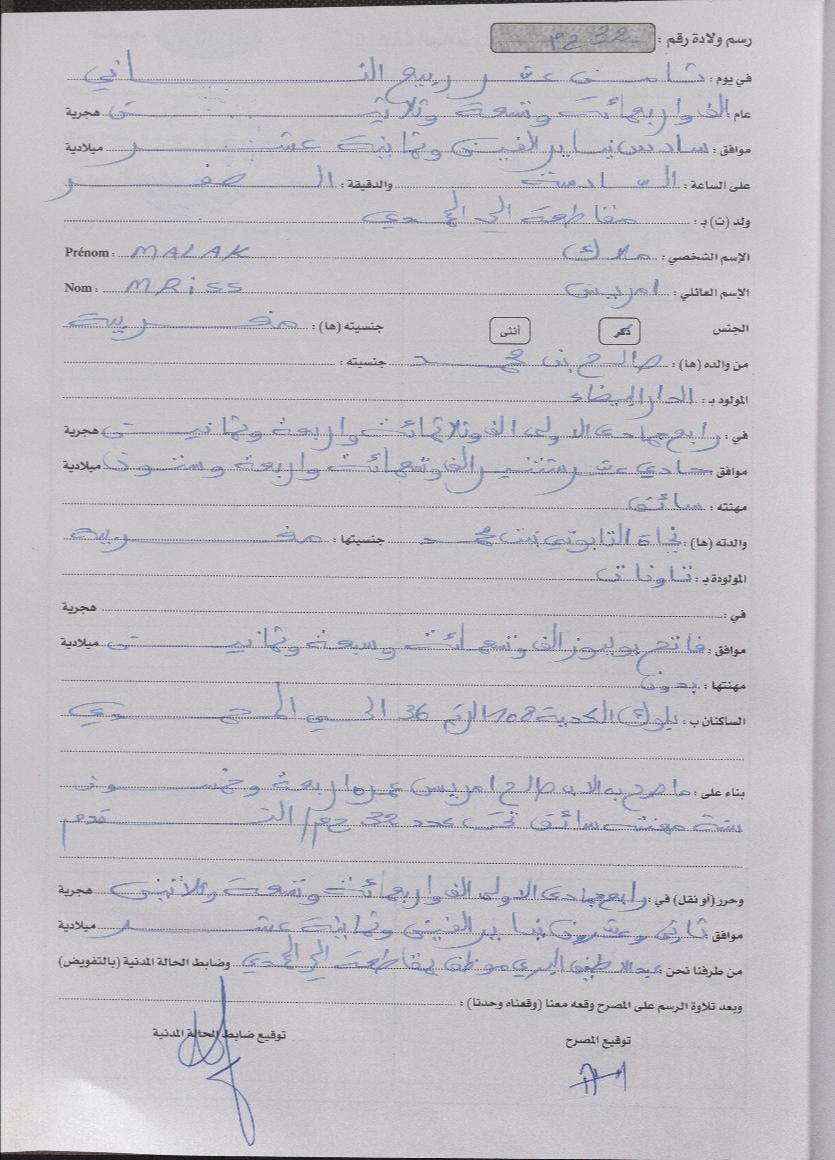 رسم ولادة رقم : 32 ح م
في يوم : ثامن عشر ربيع الثاني
عام : الف واربعمائة وتسعة وثلاثين هجرية
موافق : سادس يناير الفين وثمانية عشر ميلادية
على الساعة : السادسة والدقيقة : الصفر
ولد (ت) بـ : مقاطعة الحي المحمدي
الإسم الشخصي : ملاك Prénom : MALAK
الإسم العائلي : امريس Nom : MRiSS
الجنس ذكر أنثى جنسيته (ها) : مغربية
من والده (ها) : صالح بن محمد جنسيته :
المولود بـ : الدار البيضاء
في : رابع جمادى الاولى الف وثلاثمائة واربعة وثمانين هجرية
موافق : حادي عشر شتنبر الف وتسعمائة واربعة وستون ميلادية
مهنته : سائق
والدته (ها) : نجاة التابوتي بنت محمد جنسيتها : مغربية
المولودة بـ : تاونات
في : هجرية
موافق : فاتح يوليوز الف وتسعمائة وسبعة وثمانين ميلادية
مهنتها : بدون
الساكنان ب : بلوك الكدية 108 الرقم 36 الحي المحمدي
بناء على : ما صرح به الاب صالح امريس عمره اربعة وخمسون
سنة مهنته سائق تحت عدد 32 ح م / التقدم
وحرر (أو نقل) في : رابع جمادى الاولى الف واربعمائة وتسعة وثلاثين هجرية
موافق : ثاني وعشرون يناير الفين وثمانية عشر ميلادية
من طرفنا نحن : عبد اللطيف موظف بمقاطعة الحي المحمدي وضابط الحالة المدنية (بالتفويض)
وبعد تلاوة الرسم على المصرح وقعه معنا (وقعناه وحدنا) :
توقيع المصرح توقيع ضابط الحالة المدنية